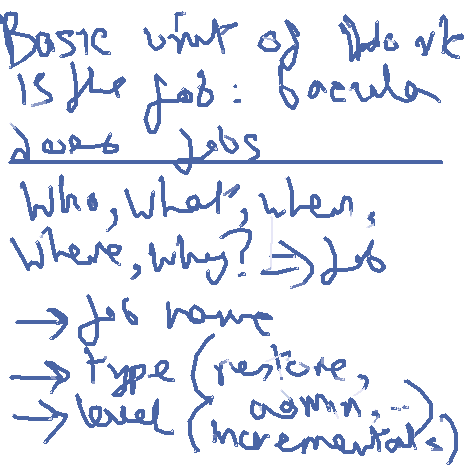 Basic unit of work
is the job: bacula
does jobs
Who, what, when,
where, why? => job
→ job name
→ type (restore,
admin, ..)
→ level (incremental s)